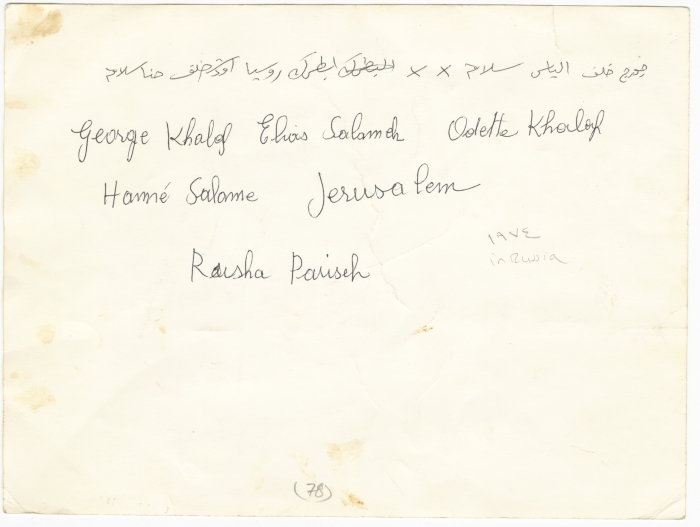 جورج خلف الياس سلامه x x البطرك البطرك روسيا اوديت خلف حنا سلامه
George Khalof Elias Salameh Odette Khalof
Hanné Salame Jerusalem
١٩٧٤
in Rusia
Raisha Pariseh
(78)